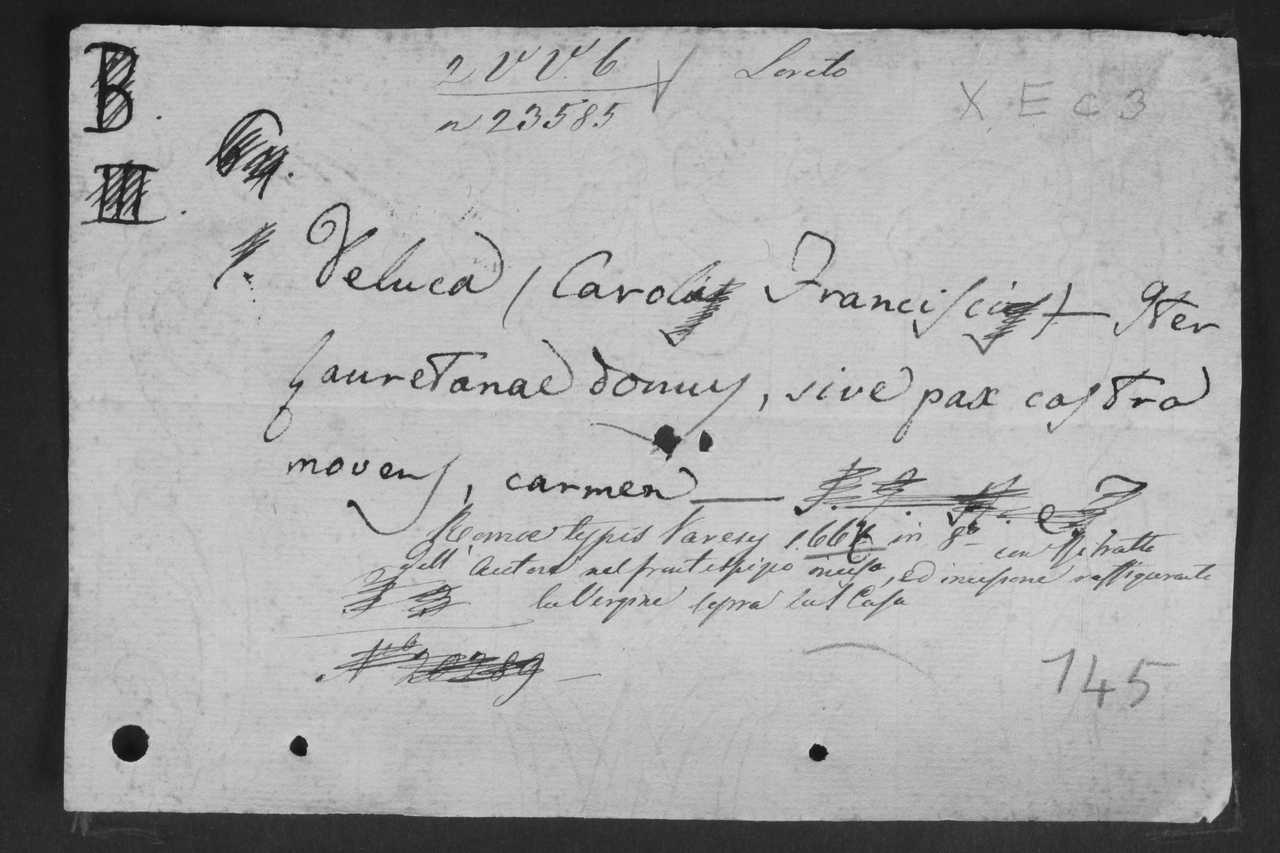 B.
III.
2 V V. 6
n 23585
Loreto
X E C 3
Veluca (Caroli Francisci) — Iter
Lauretanae domus, sive pax castra
movens, carmen —
Romae typis Varesy 1667 in 8° con Ritratto
dell' Autore nel frontespizio inciso, ed incisione raffigurante
la Vergine sopra la S Casa
N° 20289
145